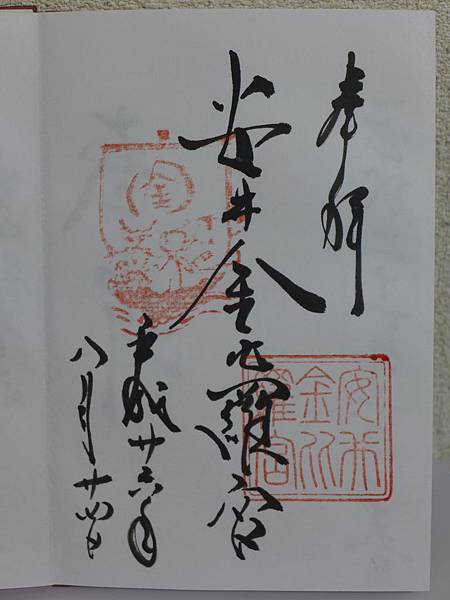 奉拝
安井金比羅宮
平成廿六年
八月廿四日
安井
金比
羅宮
金